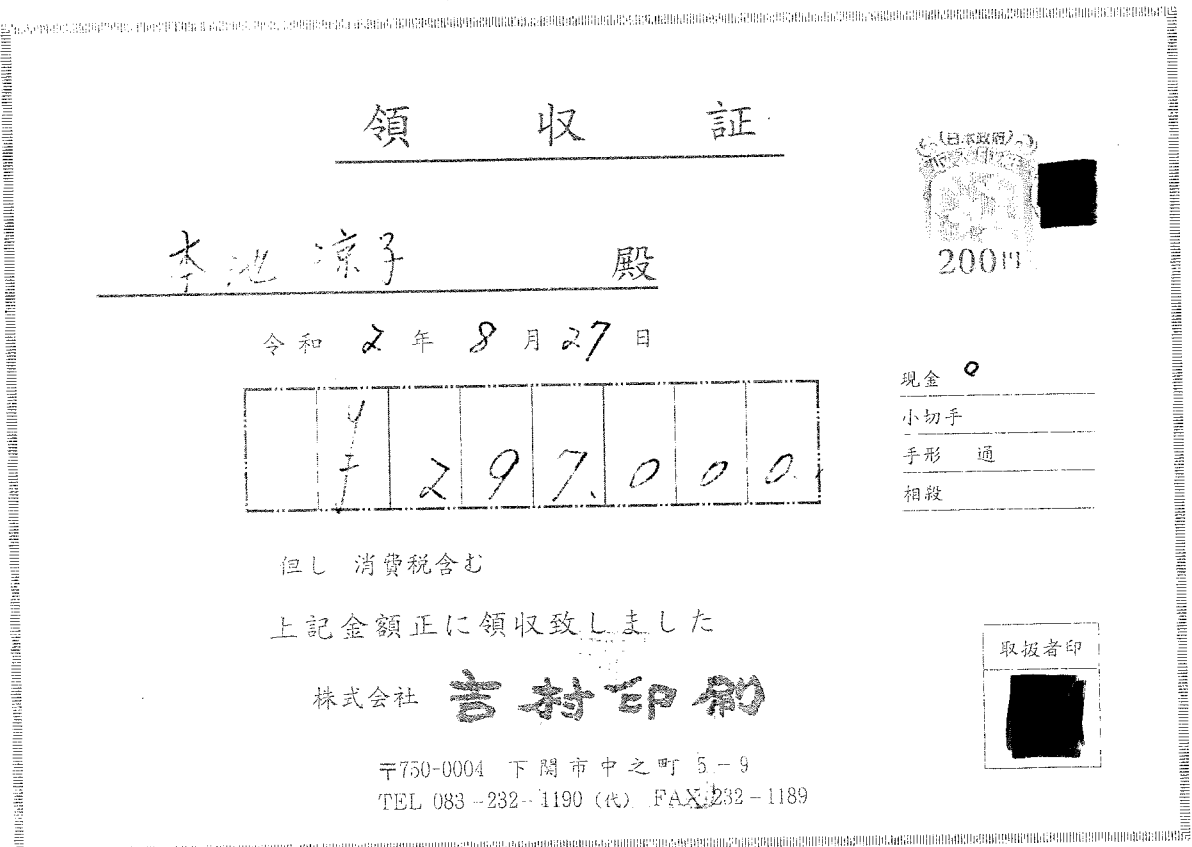 領収証
(日本政府)
200円
李池 凉子 殿
令和 2 年 8 月 27 日
現金 o
小切手
手形 通
相殺
297,000.
但し 消費税含む
上記金額正に領収致しました
取扱者印
株式会社 吉村印刷
〒750-0004 下関市中之町 5-9
TEL 083-232-1190 (代) FAX 232-1189